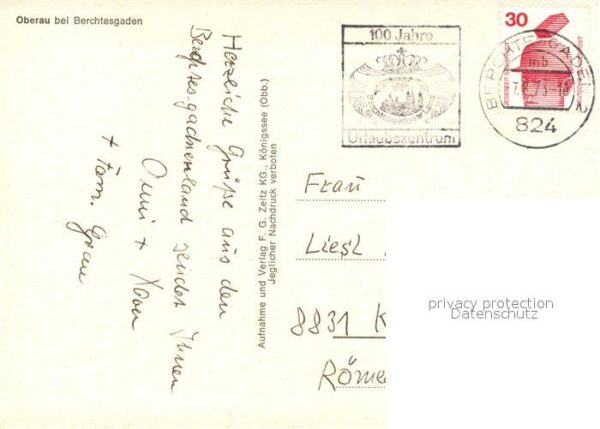 Oberau bei Berchtesgaden
Herzliche Grüße aus dem
Berchtesgadnerland sendet Ihnen
Omi +
+ Fam.
Aufnahme und Verlag F. G. Zeitz KG., Königssee (Obb.)
Jeglicher Nachdruck verboten
100 Jahre
Berchtesgadener Land
Urlaubszentrum
30
BERCHTESGADEN 2
mb
824
Frau
Liesl
8831 K
Röme
privacy protection
Datenschutz